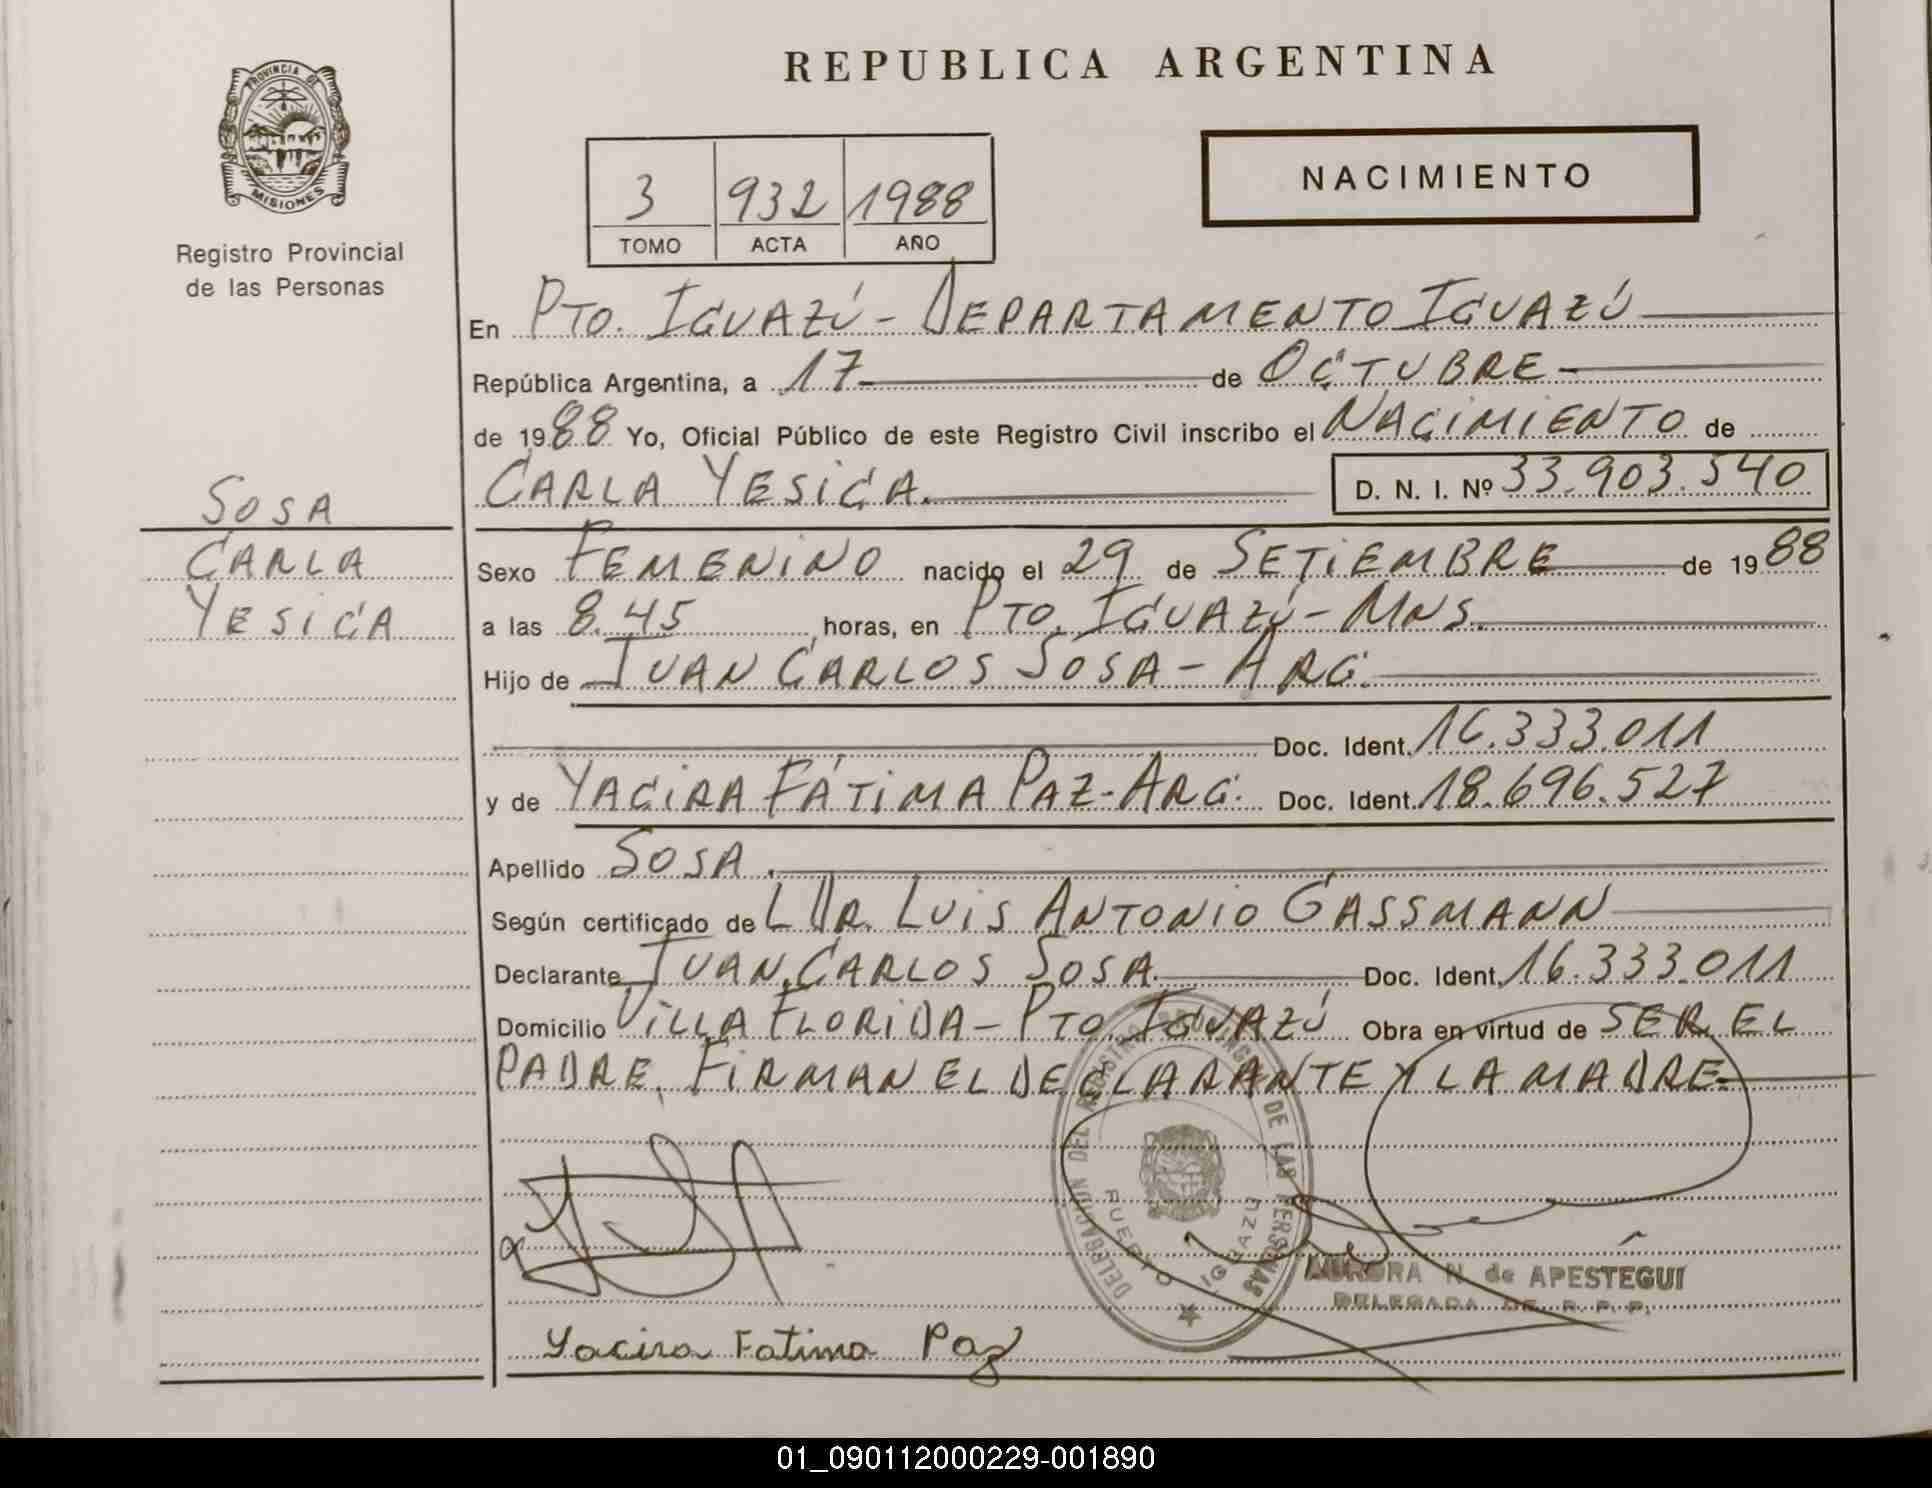 PROVINCIA DE
MISIONES
Registro Provincial
de las Personas
REPUBLICA ARGENTINA
3 932 1988
TOMO ACTA AÑO
NACIMIENTO
En PTO. IGUAZÚ - DEPARTAMENTO IGUAZÚ
República Argentina, a 17 de OCTUBRE
de 1988 Yo, Oficial Público de este Registro Civil inscribo el NACIMIENTO de
CARLA YESICA. D. N. I. Nº 33.903.540
SOSA
CARLA
YESICA
Sexo FEMENINO nacido el 29 de SETIEMBRE de 1988
a las 8.45 horas, en PTO. IGUAZÚ - MNS.
Hijo de JUAN CARLOS SOSA - ARG.
Doc. Ident. 16.333.011
y de YACIRA FÁTIMA PAZ - ARG. Doc. Ident. 18.696.527
Apellido SOSA.
Según certificado de L DR. LUIS ANTONIO GASSMANN
Declarante JUAN CARLOS SOSA Doc. Ident. 16.333.011
Domicilio VILLA FLORIDA - PTO. IGUAZÚ Obra en virtud de SER EL
PADRE. FIRMAN EL DECLARANTE Y LA MADRE
DELEGACION DEL REGISTRO PROVINCIAL DE LAS PERSONAS
PUERTO IGUAZU
AURORA N. de APESTEGUI
DELEGADA DE R. P. P.
Yacira Fatima Paz
01_090112000229-001890